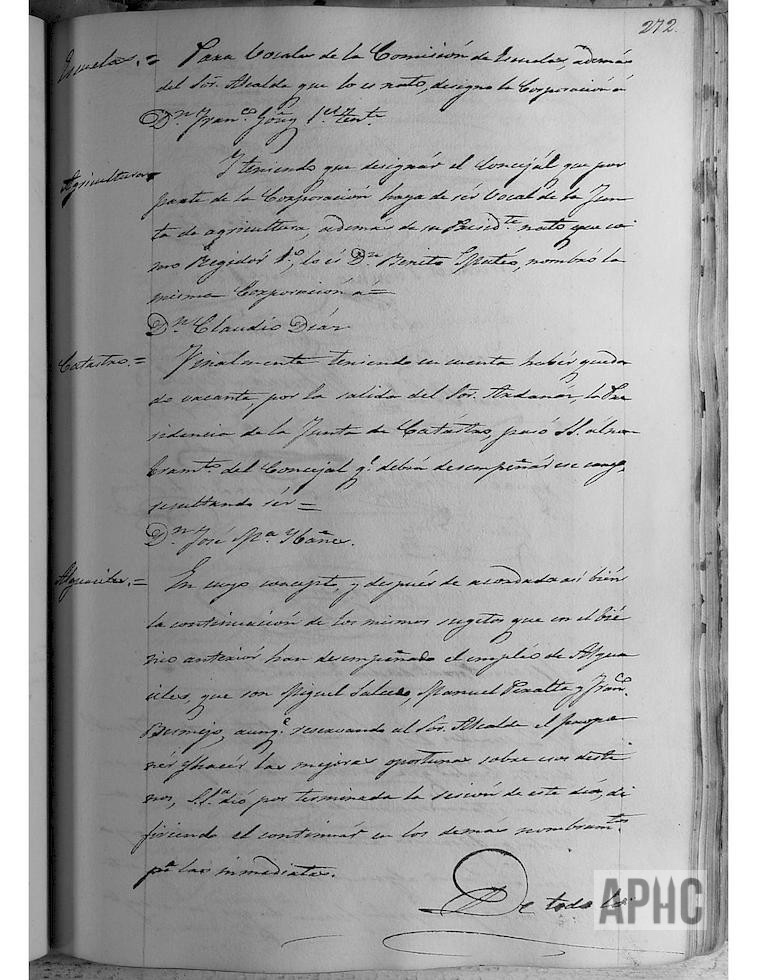 272.
Escuelas. = Para Vocales de la Comisión de Escuelas, además
del Sor. Alcalde que lo es nato, designa la Corporación á
Dn. Franco. 1er. Tente.
Agricultura Y teniendo que designár el Concejál que por
parte de la Corporación haya de sér Vocal de la Jun-
ta de agricultura, además de su Presidte. nato que co-
mo Regidór 1º, lo és Dn. Benito Matéo, nombró la
misma Corporación á =
Dn. Claudio Diáz
Catastro. = Finalmente teniendo en cuenta habér queda-
do vacante, por la salida del Sor. Andanár, la Pre-
sidencia de la Junta de Catástro, pasó S.S. al nom-
bramto. del Concejal q. debía desempeñár ese cargo,
resultando sér =
Dn. José Ma. Ybañez.
Alguaciles. = En cuyo concepto, y después de acordada así bién
la continuación de los mismos sugetos que en el bié-
nio anteriór han desempeñado el empléo de Algua-
ciles, que son Miguel Salcedo, Manuel Peralta y Franco.
Bermejo, aunqe. reservando al Sor. Alcalde el propo-
nér y hacér las mejoras oportunas sobre esos desti-
nos, S.Sa. dió por terminada la sesión de este día, di-
firiendo el continuár en los demás nombramtos.
pa. las inmediatas.
De todo lo
APHC